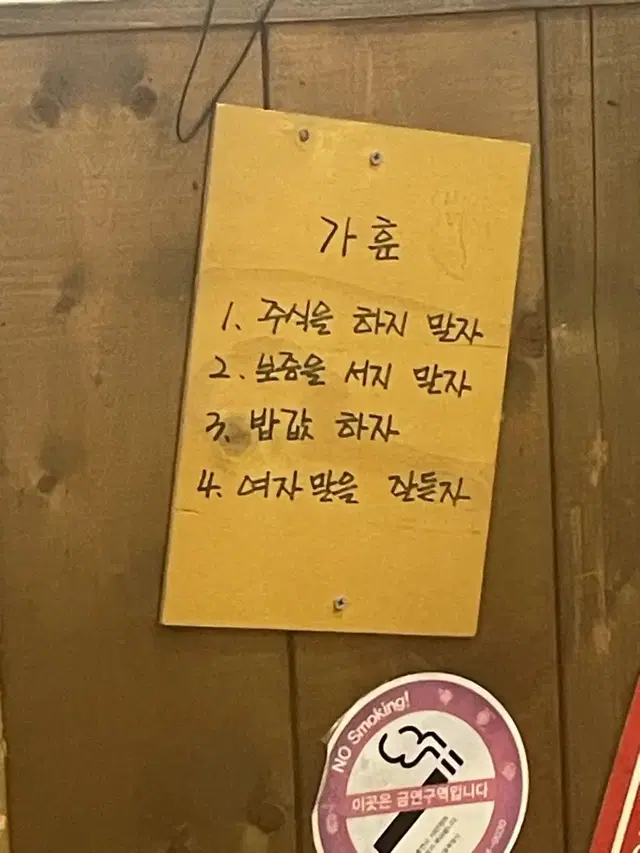 가훈
1. 주식을 하지 말자
2. 보증을 서지 말자
3. 밥값 하자
4. 여자 말을 잘듣자
NO Smoking!
이곳은 금연구역입니다